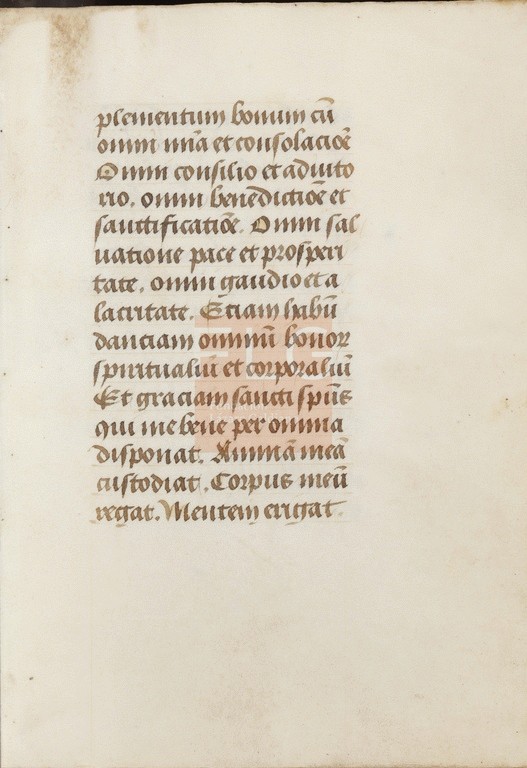 plementum bonum cū
omni mīa et consolacioē
Omni consilio et adiuto
rio. omni benedictioē et
sanctificatioē. Omni sal
uatione pace et prosperi
tate. omni gaudio et a
lacritate. Etiam habū
danciam omniū bonoꝝ
spiritualiū et corporaliū
Et graciam sancti spūs
qui me bene per omnia
disponat. Animam meā
custodiat. Corpus meū
regat. Mentem erigat.